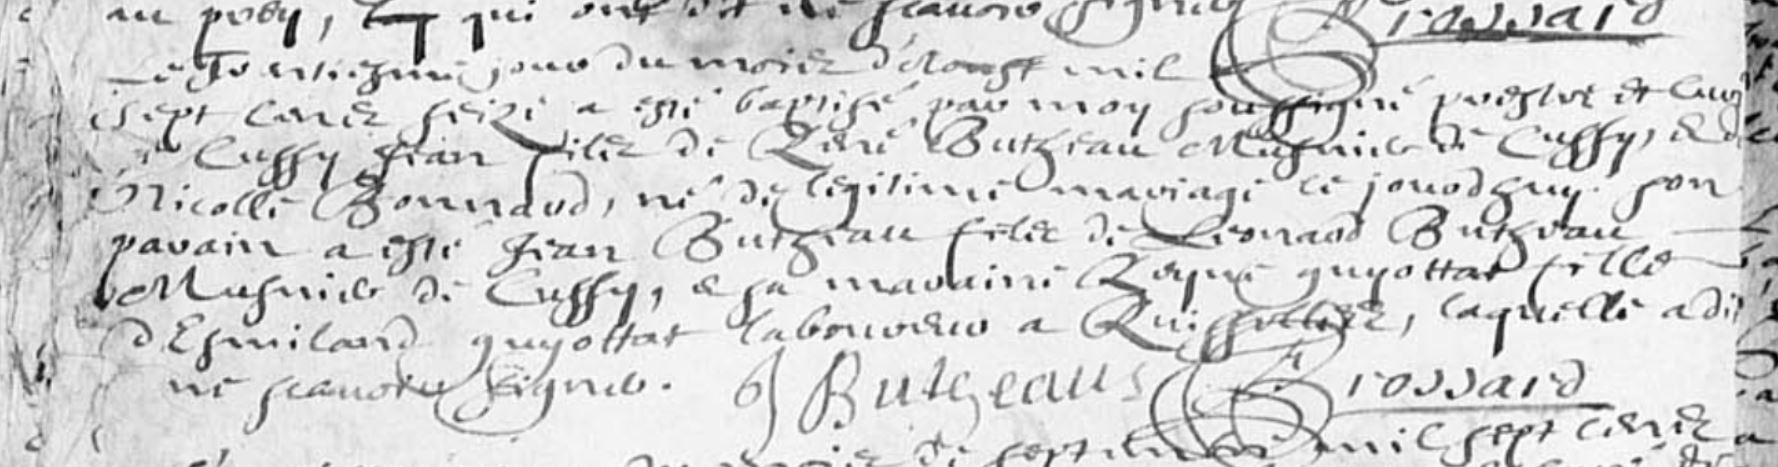 au poey, qui ont dit ne scavoir signer Brossard
Le Trentiesme jour du mois d'Aoust mil
sept cents seize a esté baptisé par moy soussigné prestre et curé
de Cuffy Jean fils de René Butheau Musnier de Cuffy, & de
Nicolle Bonnard, né de légitime mariage ce jourdhuy. son
parain a esté Jean Butheau fils de Leonard Butheau
Musnier de Cuffy, & sa maraine Reyne guyottat fille
d'Esmiland guyottat laboureur a, laquelle a dit
ne scavoir signer. J Butheaus Brossard
mois de septembre mil sept cents